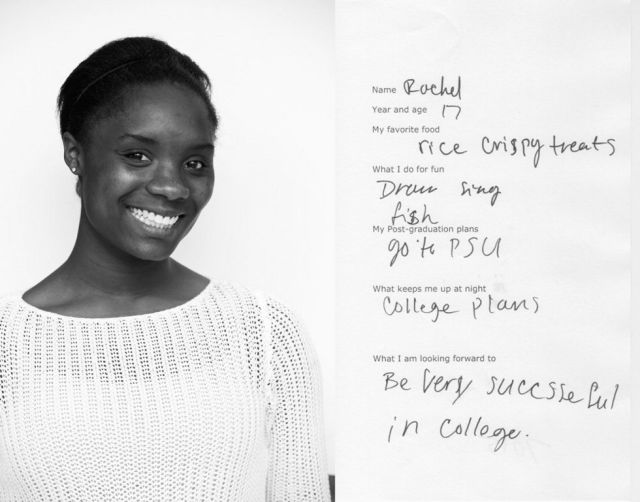 Name Rachel
Year and age 17
My favorite food
rice crispy treats
What I do for fun
Draw sing
fish
My Post-graduation plans
go to PSU
What keeps me up at night
College plans
What I am looking forward to
Be very succsseful
in college.